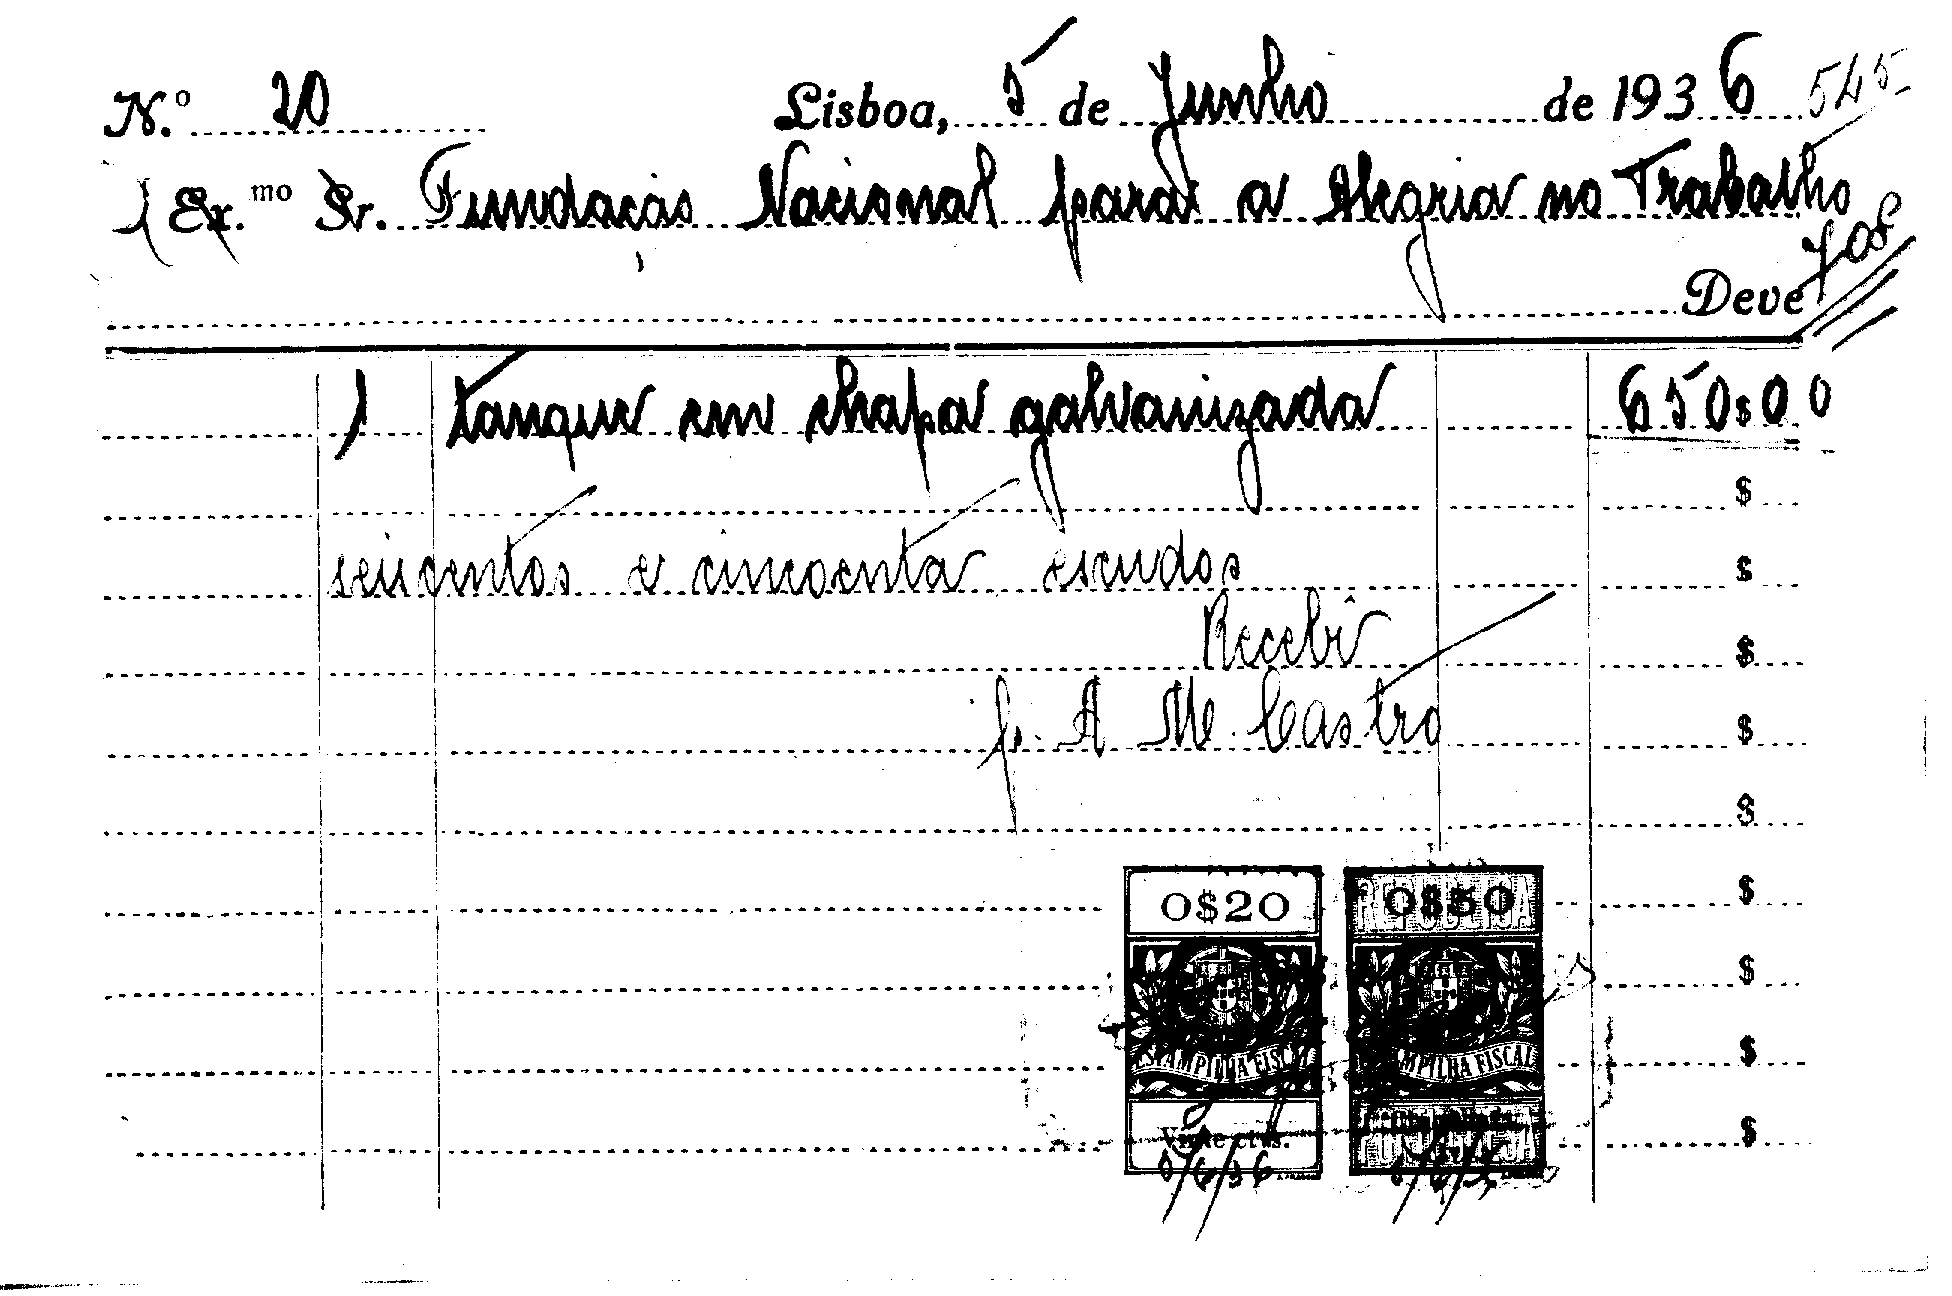 N.º 20 Lisboa, 5 de Junho de 1936 545
Ex.mo Sr. Fundação Nacional para a Alegria no Trabalho
708
Deve
1 tanque em chapa galvanizada 650$00
$
seiscentos e cincoenta escudos $
Recebi $
p. A M. Castro $
$
0$20 0$50 $
$
ESTAMPILHA FISCAL ESTAMPILHA FISCAL $
Vinte ctvs. $
5/6/36